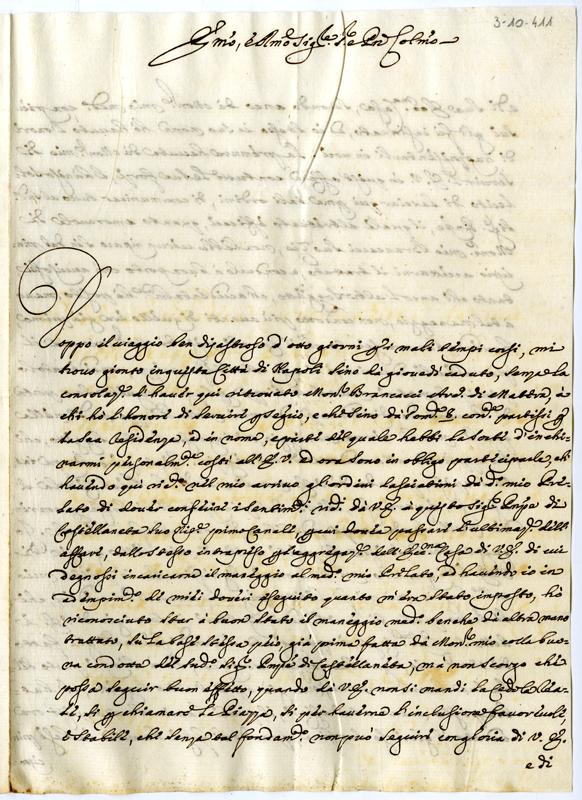 3-10-411
Em̃o, e R.mo Sig.re S.re e Pñ Colmo
Doppo il viaggio ben disastroso d'otto giorni p̱ i mali tempi corsi, mi
trovo gionto in questa Città di Napoli sino da giovedì caduto, senza la
consolaz.e d'haver qui ritrovato Mons.r Brancacci Arc.o di Matera, à
chi hò l'honore di servire p̱ Seg.rio, e che sino di con.
la sua residenza, et in nome, e parte del quale hebbi la sorte d'inchi-
narmi personalm.te costì all'E. V. et ora sono in obligo participarle, ch'
havendo qui nel mio arrivo gl'ordini lasciatimi di d.o mio Pre-
lato di dover conferire i sentim.ti di V. E. à questo Sig.r Prñpe di
Castellaneta suo primo Canale, p̱ cui doveva passarsi l'ultimaz.e dell'
affare, dallo stesso intrapreso p̱ l'aggregaz.e dell' Casa di V. E. di cui
degnossi incaricarne il maneggio al med.o mio Prelato, et havendo io in
adempim.to de miei doveri eseguito quanto m'era stato imposto, hò
riconosciuto star à buon stato il maneggio med.o benche da altra mano
trattato, sù la base stessa però già prima fatta da Mons.r mio colla buo-
na condotta del sud.o Sig.r Prñpe di Castellaneta, mà non scorgo che
possa seguir buon effetto, quando da V. E. non si mandi la Cedola Rea-
le, sì p̱ chiamare la Piazza, sì per haverne l'inclusione favorevole,
e stabile, che senza tal fondam.to non può seguire con gloria di V. E.
e di